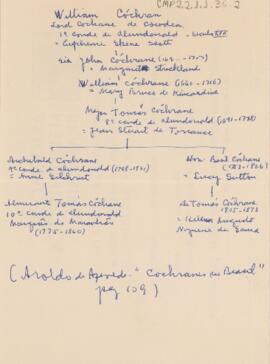 CMP 22.1.1.36-2
William Cóchran
Lord Cochrane de
1º Conde de Dundonald
= Eupheme Skene Scott
Sir John Cóchrane
= Margaret Strickland
William Cóchrane
= Mary Bruce de Kincardine
Major Tomás Cóchrane
8º Conde de Dundonald (1691-1778)
= Jean Stuart de Torrance
Archibald Cóchrane
9º Conde de Dundonald
= Anne Gilchrist
Almirante Tomás Cóchrane
10º Conde de Dundonald
Marquês do Maranhão
(1775-1860)
Hon. Basil Cóchrane
= Lucy Sutton
Dr Tomás Cóchrane
1805-1873
= Helena Augusta
Nogueira da Gama
(Aroldo de Azevedo - "Cochranes no Brasil"
pag 109)